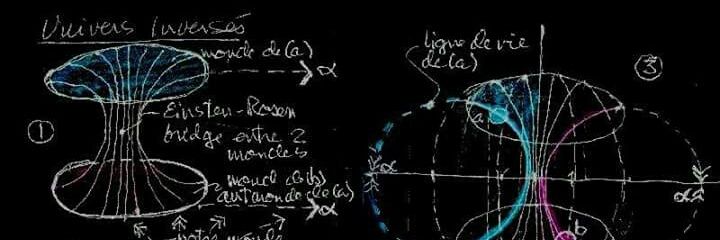 Univers Inversés
monde de (a)
α
Einstein-Rosen
bridge entre 2
mondes
①
monde de (b)
antimonde de (a)
α
notre monde
ligne de vie
de (a)
③
a
α
b